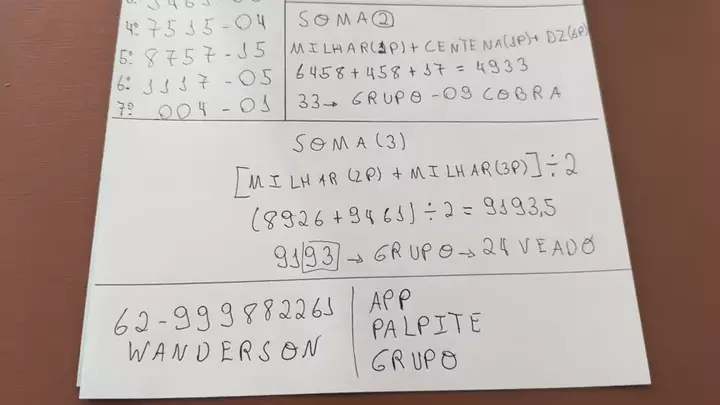 4º 7515-04
5º 8757-15
6º 1117-05
7º 004-01
SOMA②
MILHAR(1P)+CENTENA(1P)+DZ(6P)
6458+458+17=4933
33→GRUPO-09 COBRA
SOMA(3)
[MILHAR(2P)+MILHAR(3P)]÷2
(8926+9461)÷2=9193,5
9193→GRUPO→24 VEADO
62-999882261
WANDERSON
APP
PALPITE
GRUPO